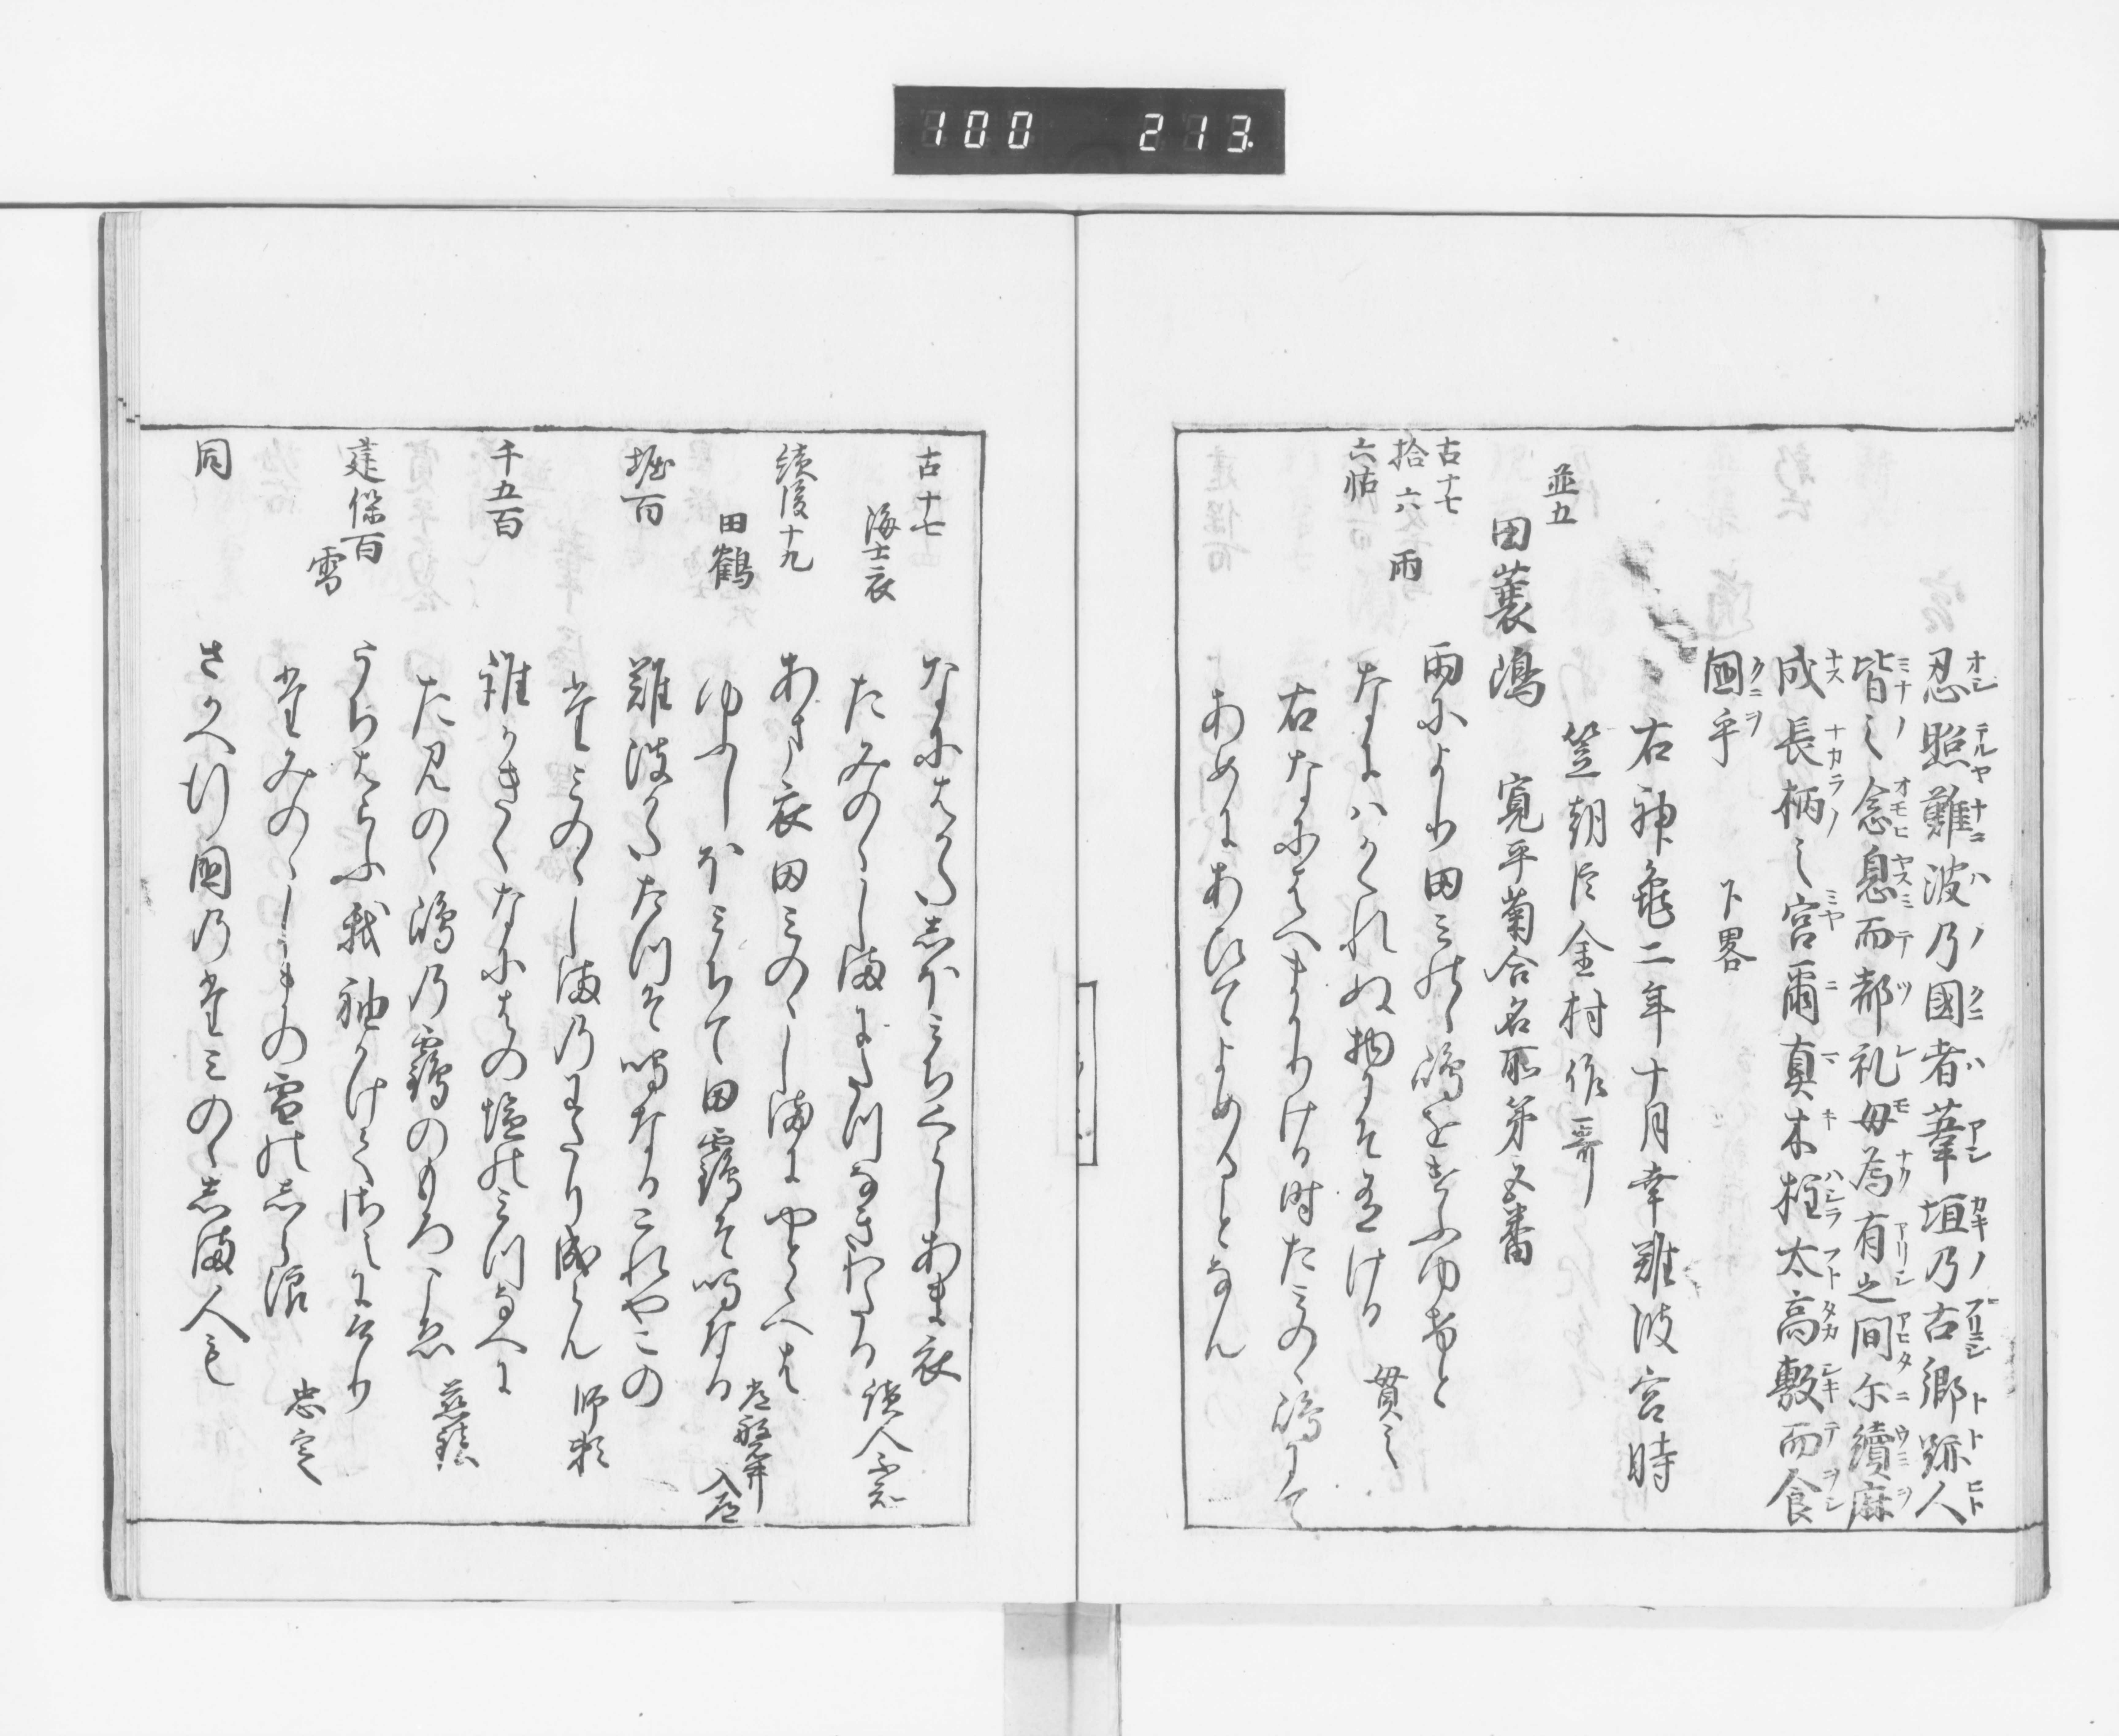 100 213
忍照難波乃國者葦垣乃古郷跡人
皆之念息而都礼毋為有之間尓續麻
成長柄之宮爾真木柱太高敷而食
國乎 下畧
右神亀二年十月幸難波宮時
笠朝臣金村作哥
並五
田蓑嶋 寛平菊合名所第五番
古十七
拾六 雨
六帖
雨により田みのゝ嶋をけふゆけと
なにはかくれぬ物にそ有ける 貫之
右なにはへまかりける時たみのゝ嶋にて
あめにあひてよめるとなん
古十七
海士衣
なにはかた志ほみちくらしあま衣
たみのゝし満にたつなきわたる 讀人不知
続後十九
あま衣田みのゝし満にやとゝへは
ゆふしほみちて田鶴そ鳴なる 常磐井入道
田鶴
堀百
難波かたたつそ鳴なるこれやこの
たみのゝし満乃わたり成らん 師頼
千五百
誰かきくなにはの塩のみつなへに
た見のゝ嶋乃鶴のもろこゑ 慈鎮
建保百
雪
うちはらふ我袖かけてつもりにけり
たみのゝしまの雪の志ら浪 忠定
同
さかへ行國乃たみのゝ志满人も